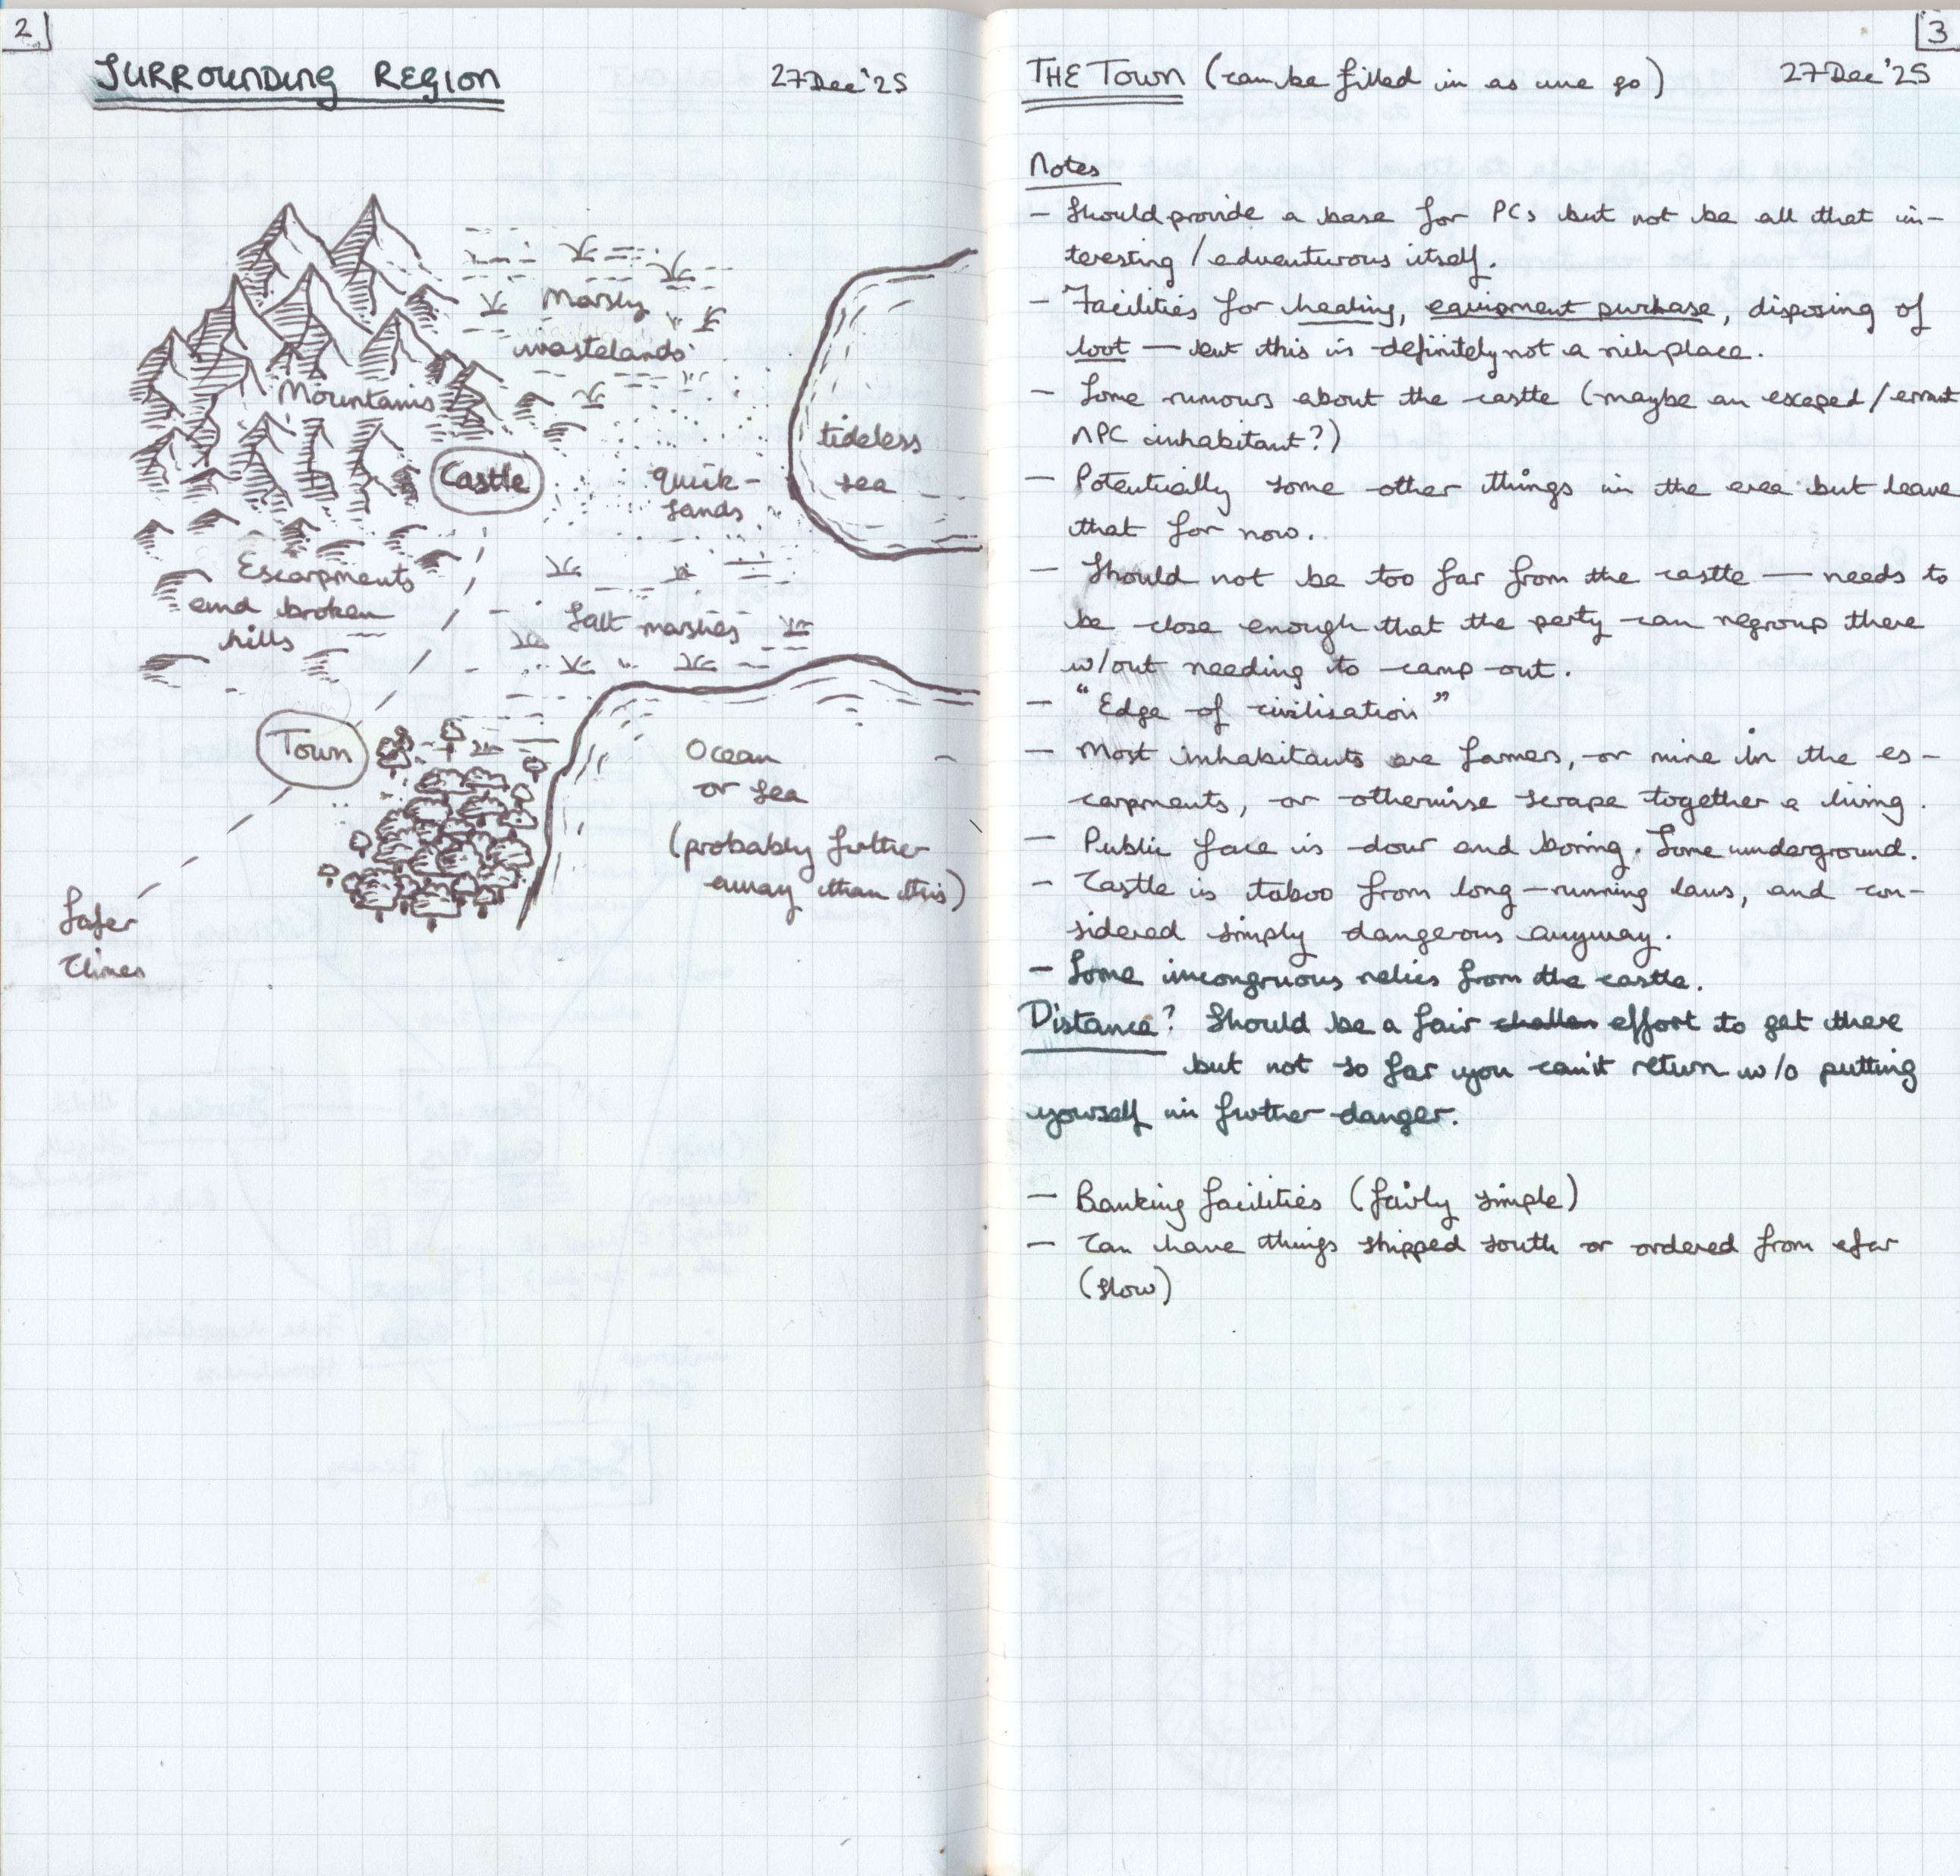 2
SURROUNDING REGION
27 Dec '25
Marshy
wastelands
Mountains
tideless
sea
Castle
quick-
sands
Escarpments
and broken
hills
Salt marshes
Town
Ocean
or sea
(probably further
away than this)
Safer
Climes
3
THE TOWN (can be filled in as we go)
27 Dec '25
Notes
- Should provide a base for PCs but not be all that in-
teresting / adventurous itself.
- Facilities for healing, equipment purchase, disposing of
loot — but this is definitely not a rich place.
- Some rumours about the castle (maybe an escaped / errant
NPC inhabitant?)
- Potentially some other things in the area but leave
that for now.
- Should not be too far from the castle — needs to
be close enough that the party can regroup there
w/out needing to camp out.
- "Edge of civilisation"
- Most inhabitants are farmers, or mine in the es-
carpments, or otherwise scrape together a living.
- Public face is dour and boring. Some underground.
- Castle is taboo from long-running laws, and con-
sidered simply dangerous anyway.
- Some incongruous relics from the castle.
Distance? Should be a fair challen effort to get there
but not so far you can't return w/o putting
yourself in further danger.
- Banking facilities (fairly simple)
- Can have things shipped south or ordered from afar
(slow)